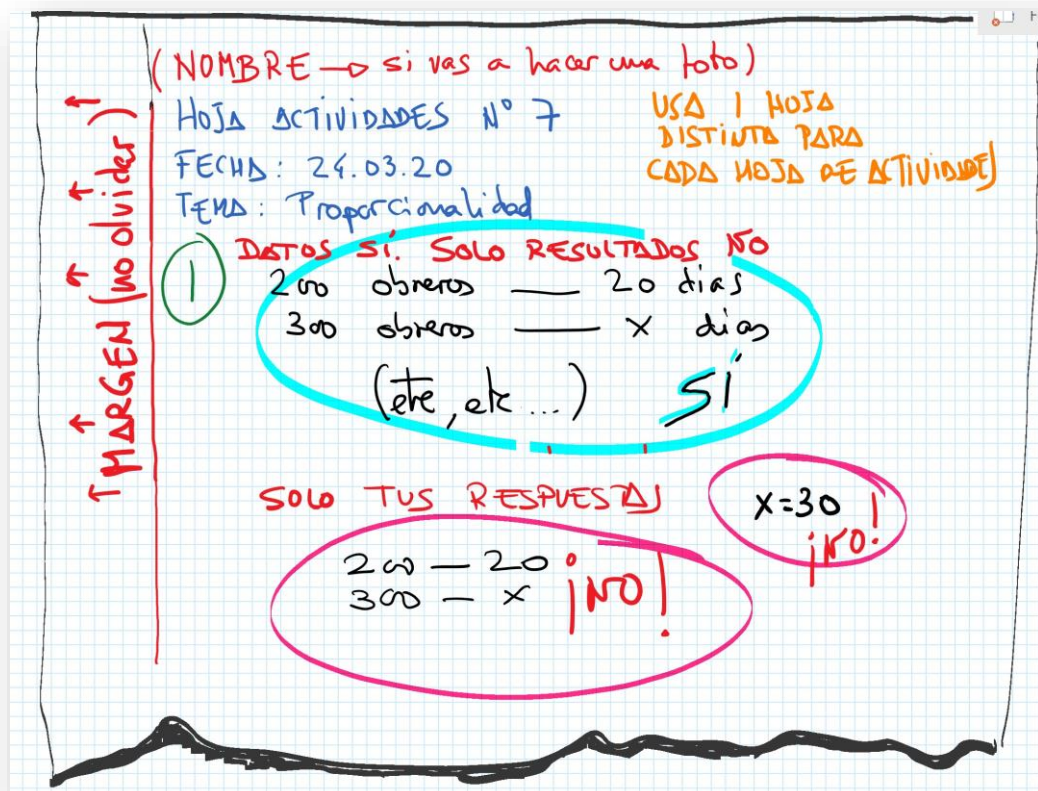 (NOMBRE → si vas a hacer una foto)
HOJA ACTIVIDADES Nº 7
FECHA: 24.03.20
TEMA: Proporcionalidad
USA 1 HOJA
DISTINTA PARA
CADA HOJA DE ACTIVIDADES
↑ MARGEN (no olvidar) ↑
DATOS SÍ. SOLO RESULTADOS NO
1
200 obreros — 20 días
300 obreros — x días
(etc, etc...) SÍ
SOLO TUS RESPUESTAS
x=30
¡NO!
200 — 20
300 — x
¡NO!